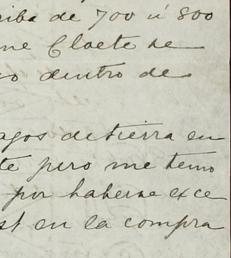 riba de 700 ú 800
me Cloete se
o dentro de
agos de tierra en
te pero me temo
por haberse exce
st en la compra